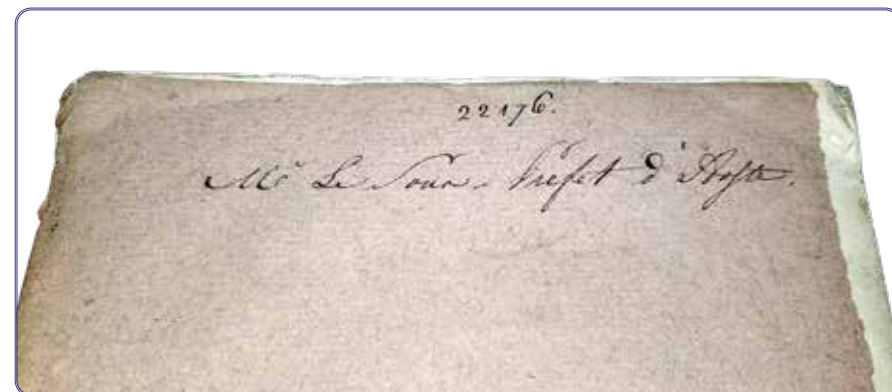 22176.
Mr Le Sous-Préfet d'Aoste.